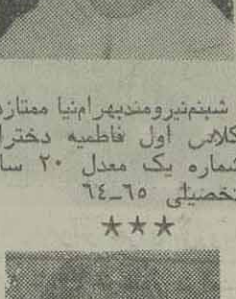 شبنم‌نیرومندبهرامنیا ممتاز
کلاس اول فاطمیه دخترا
شماره یک معدل ۲۰ سا
تحصیلی ۶۵ـ۶۴
★★★